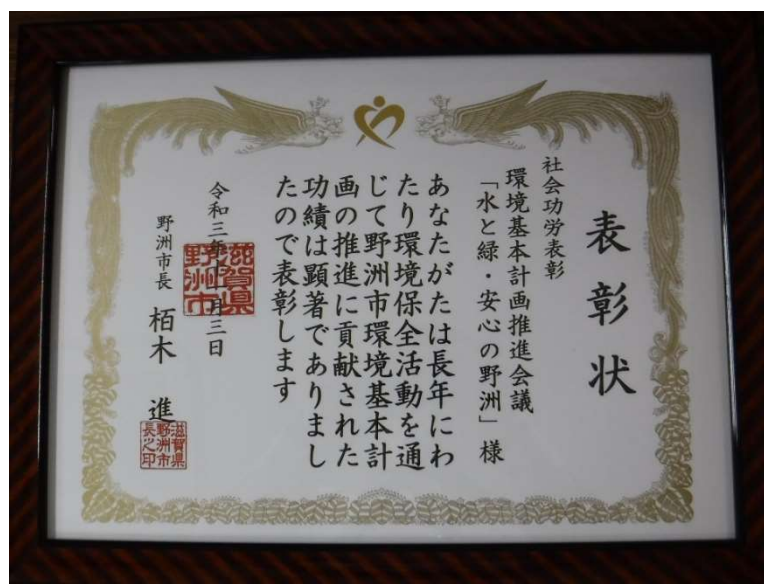 表彰状
社会功労表彰
環境基本計画推進会議
「水と緑・安心の野洲」様
あなたがたは長年にわ
たり環境保全活動を通
じて野洲市環境基本計
画の推進に貢献された
功績は顕著でありまし
たので表彰します
令和三年十一月三日
滋賀県
野洲市
野洲市長 栢木 進
滋賀県
野洲市
長之印